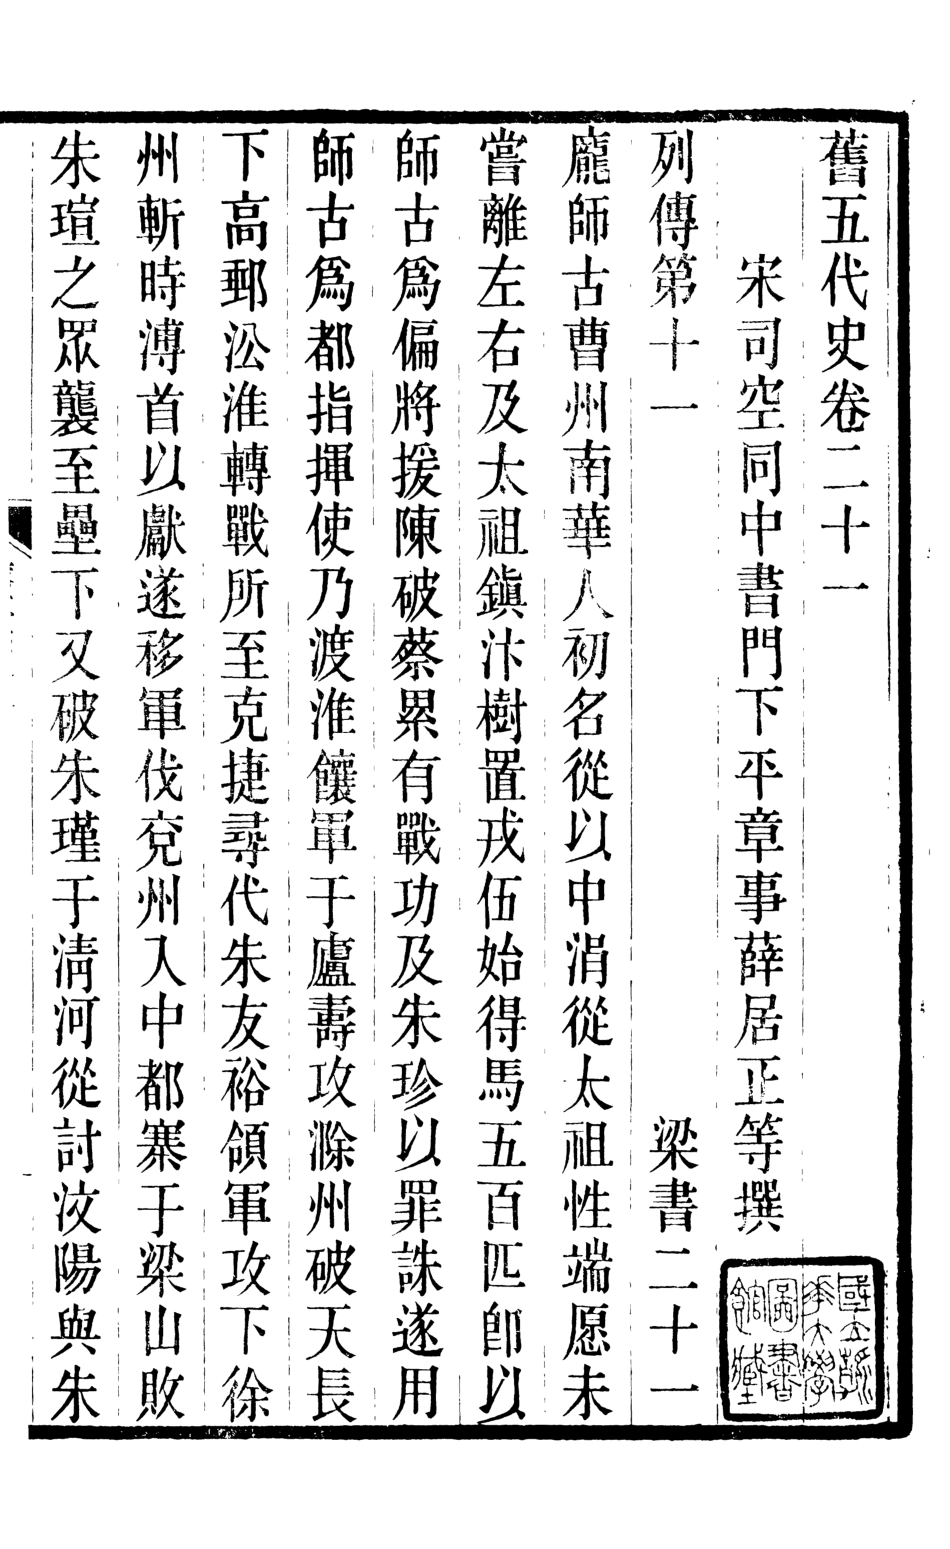 舊五代史卷二十一
宋司空同中書門下平章事薛居正等撰
列傳第十一 梁書二十一
龐師古曹州南華人初名從以中涓從太祖性端愿未
嘗離左右及太祖鎭汴樹置戎伍始得馬五百匹卽以
師古爲偏將援陳破蔡累有戰功及朱珍以罪誅遂用
師古爲都指揮使乃渡淮饟軍于廬壽攻滁州破天長
下高郵沿淮轉戰所至克捷尋代朱友裕領軍攻下徐
州斬時溥首以獻遂移軍伐兗州入中都寨于梁山敗
朱瑄之眾襲至壘下又破朱瑾于淸河從討汶陽與朱
國立清華大學圖書館藏